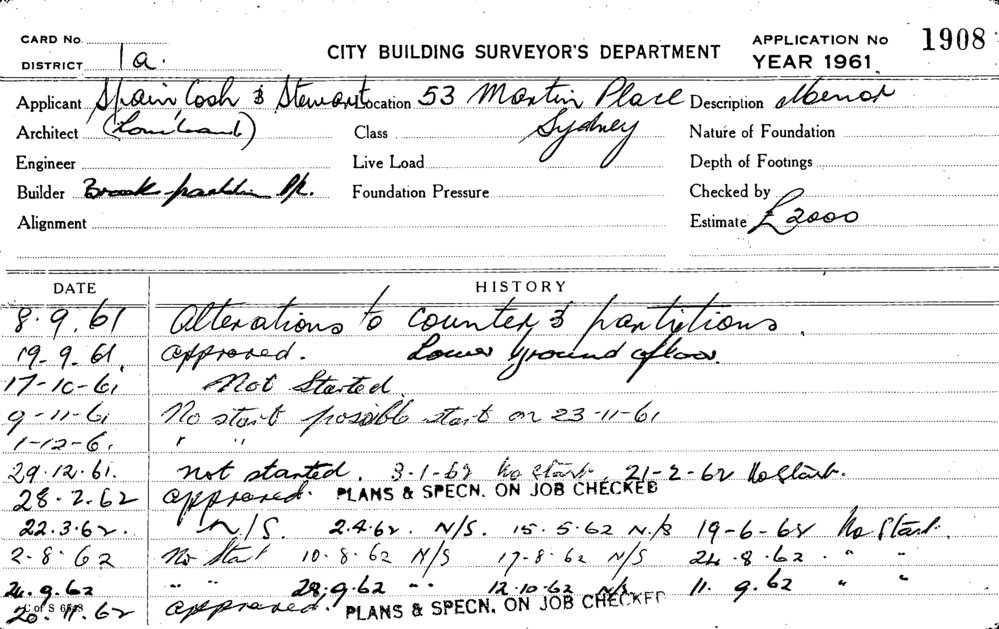 CARD No.
DISTRICT 1a.
CITY BUILDING SURVEYOR'S DEPARTMENT
APPLICATION No 1908
YEAR 1961
Applicant Spain Cosh & Stewart Location 53 Martin Place Description
Architect (Lombard) Class Sydney Nature of Foundation
Engineer Live Load Depth of Footings
Builder Foundation Pressure Checked by
Alignment Estimate £2000
DATE HISTORY
8.9.61 Alterations to counter & partitions.
19-9-61 approved. Lower ground floor.
17-10-61 Not Started.
9-11-61 No start possible start on 23-11-61
1-12-61 " "
29.12.61. not started. 3-1-62 No Start. 21-2-62 No Start.
28.2.62 approved. PLANS & SPECN. ON JOB CHECKED
22.3.62. N/S. 2.4.62. N/S. 15.5.62 N/S 19-6-62 No Start.
2-8-62 No Start 10.8.62 N/S 17-8-62 N/S 24.8.62. " "
" " 28.9.62 " " 12.10.62 N/S 11.9.62 " "
C of S 6543
26.11.62 approved. PLANS & SPECN. ON JOB CHECKED